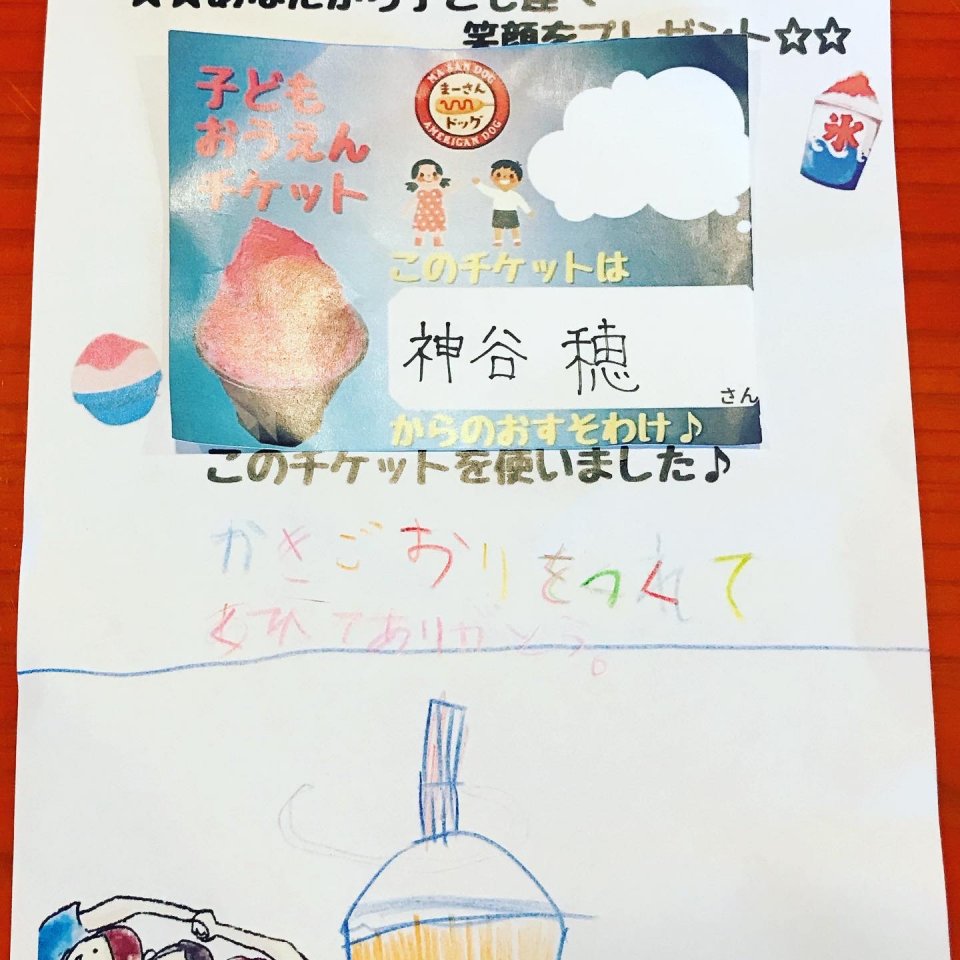 ☆☆あなたから子ども達へ
笑顔をプレゼント☆☆
子ども
おうえん
チケット
MA-SAN DOG
まーさん
ドッグ
AMERICAN DOG
氷
このチケットは
神谷 穂
さん
からのおすそわけ♪
このチケットを使いました♪
かきごおりをつくて
くれてありがとう。